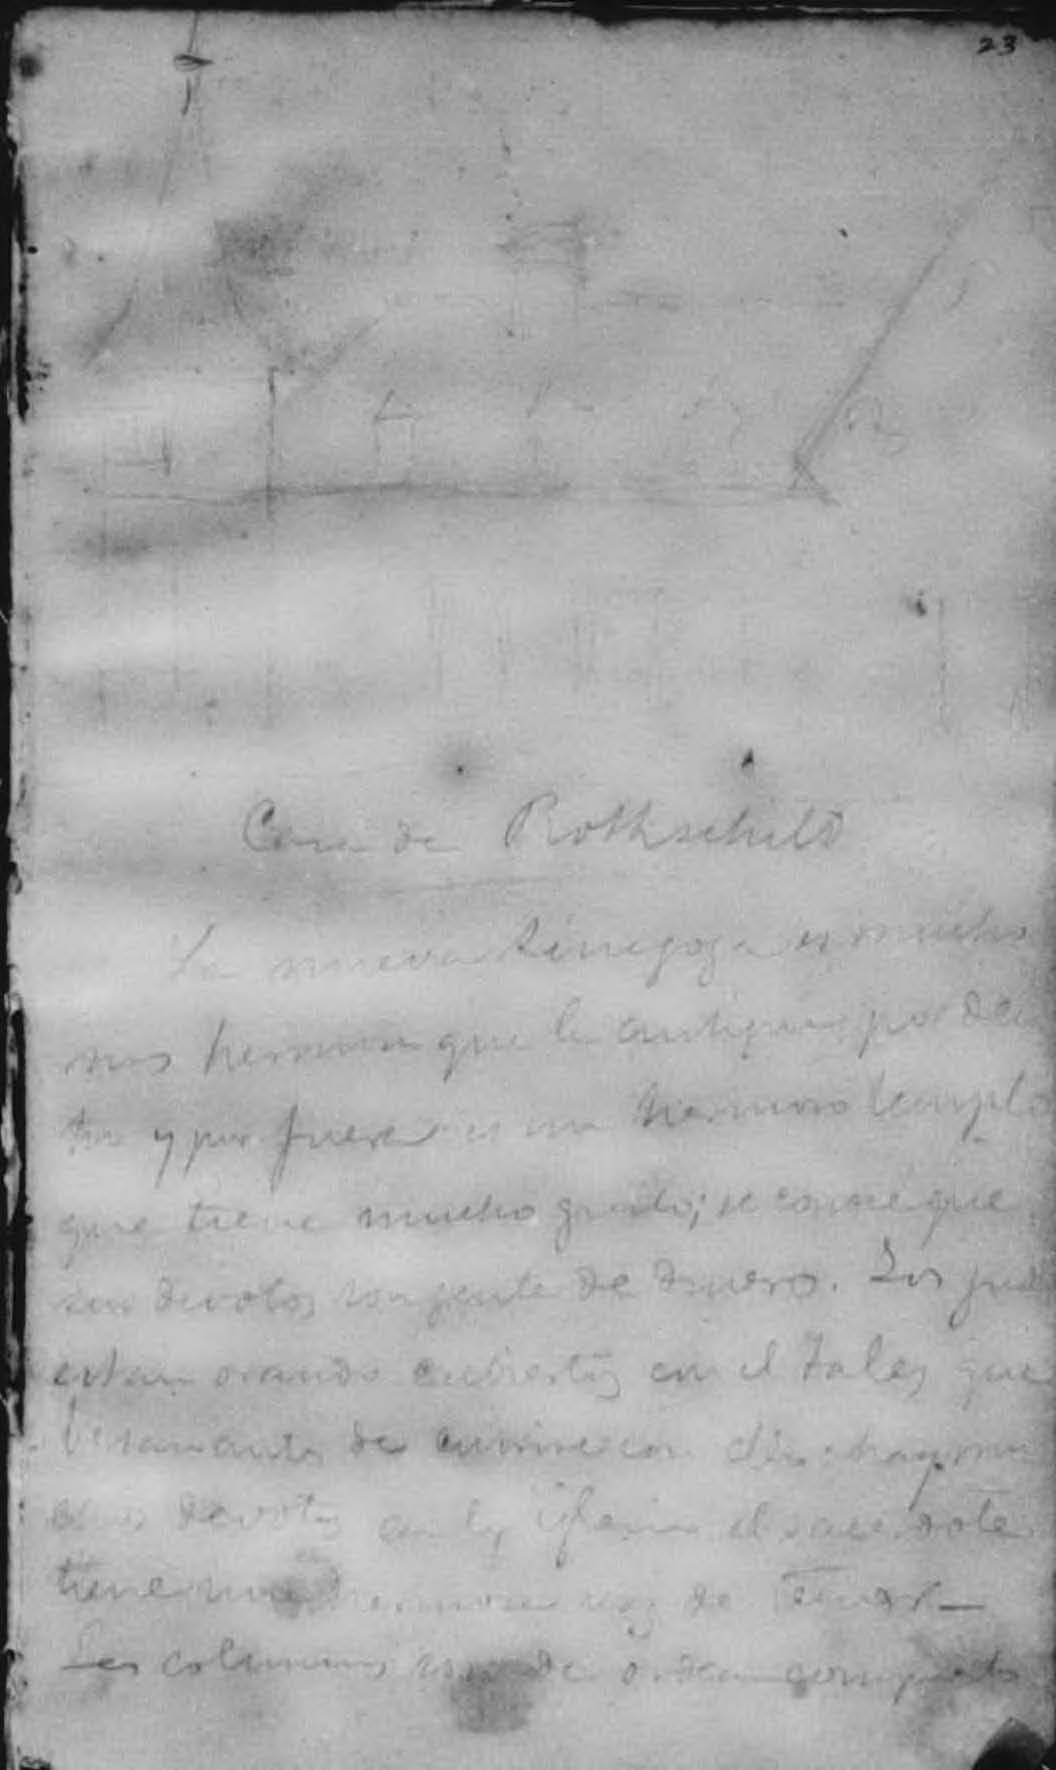 23
Casa de Rothschild
La nueva Sinagoga es mucho
mas hermosa que la antigua por den
tro y por fuera es un hermoso templo
que tiene mucho gusto; se conoce que
sus devotos son gente de dinero. Los jud
estan orando cubiertos con el Tales que
besan antes de
devotos en la iglesia el sacerdote
tiene una hermosa voz de Tenor—
Las columnas son de orden compuesto